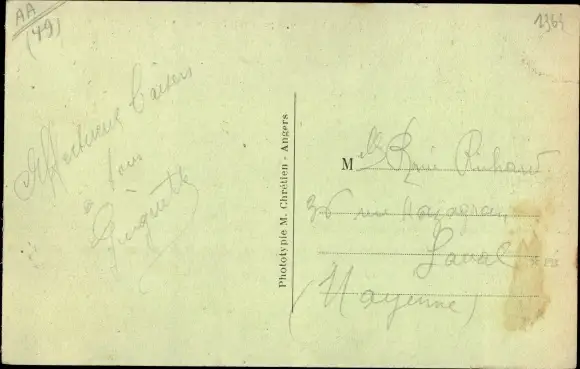 AA
(49)
1364
Affectueux Baisers
à tous
Guiguette
Phototypie M. Chrétien - Angers
Mlle
36 rue Mazagran
Laval
(Mayenne)